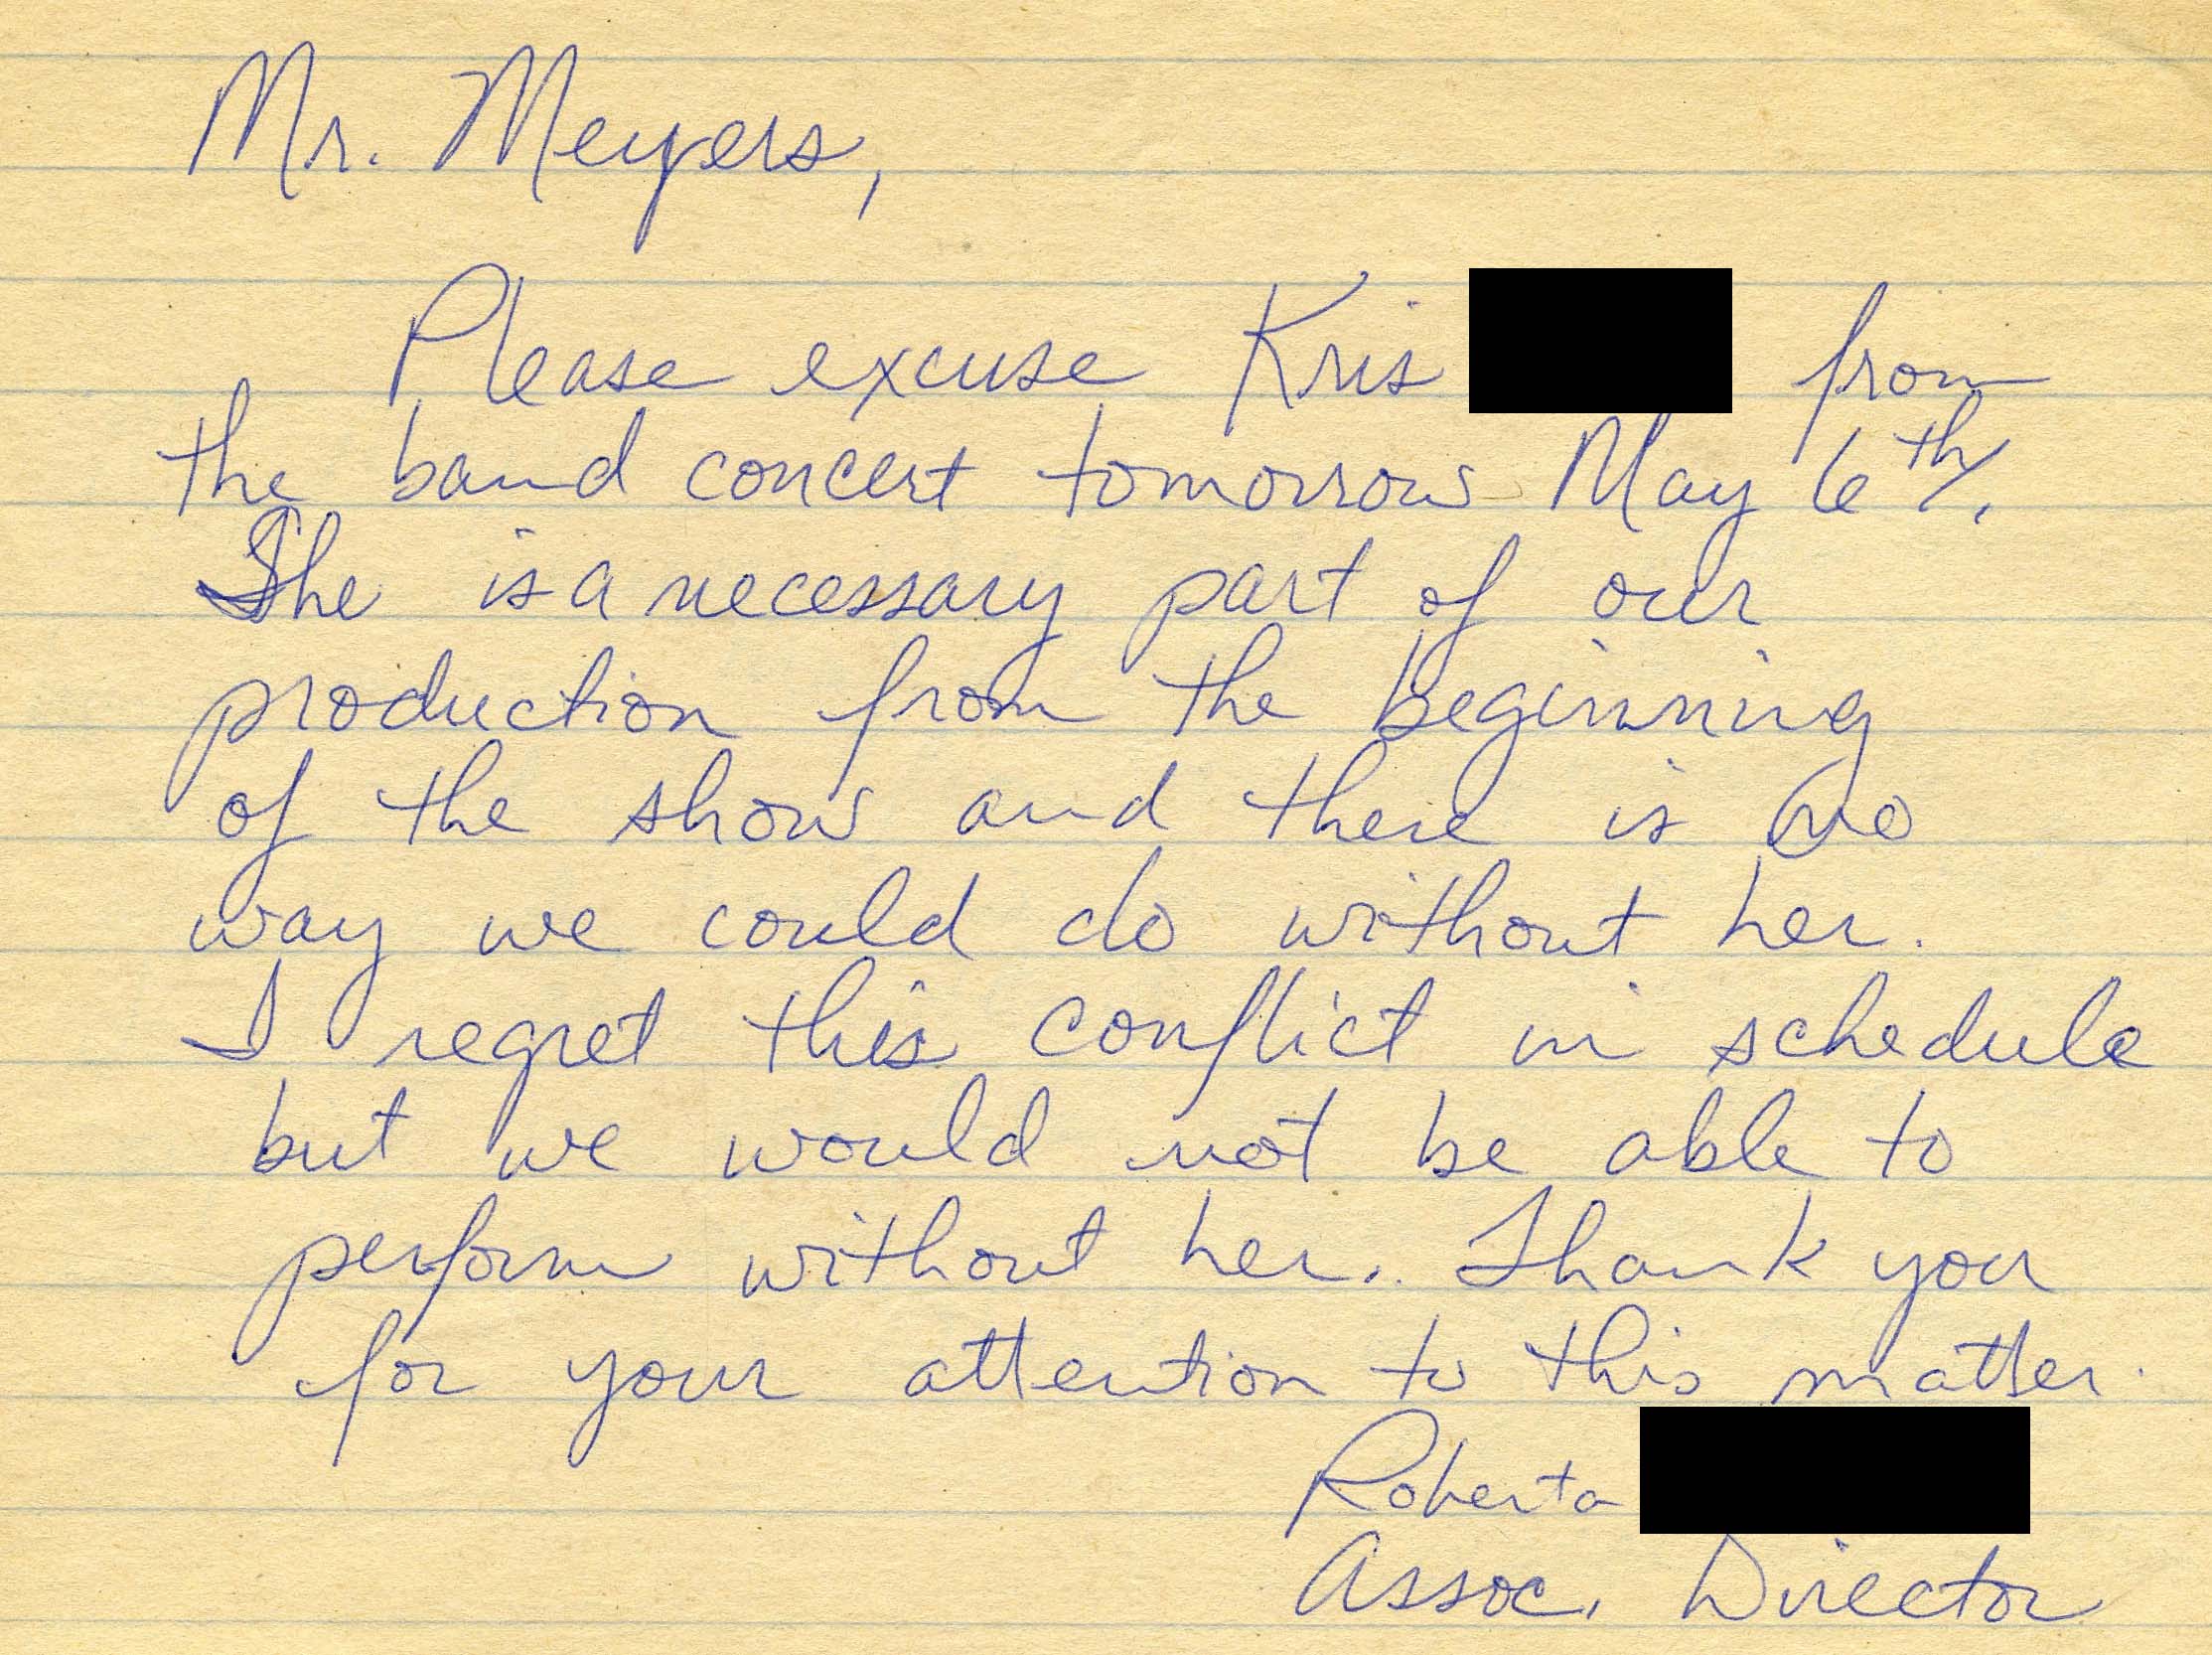 Mr. Meyers,
Please excuse Kris from
the band concert tomorrow May 6th.
She is a necessary part of our
production from the beginning
of the show and there is no
way we could do without her.
I regret this conflict in schedule
but we would not be able to
perform without her. Thank you
for your attention to this matter.
Roberta
Assoc. Director